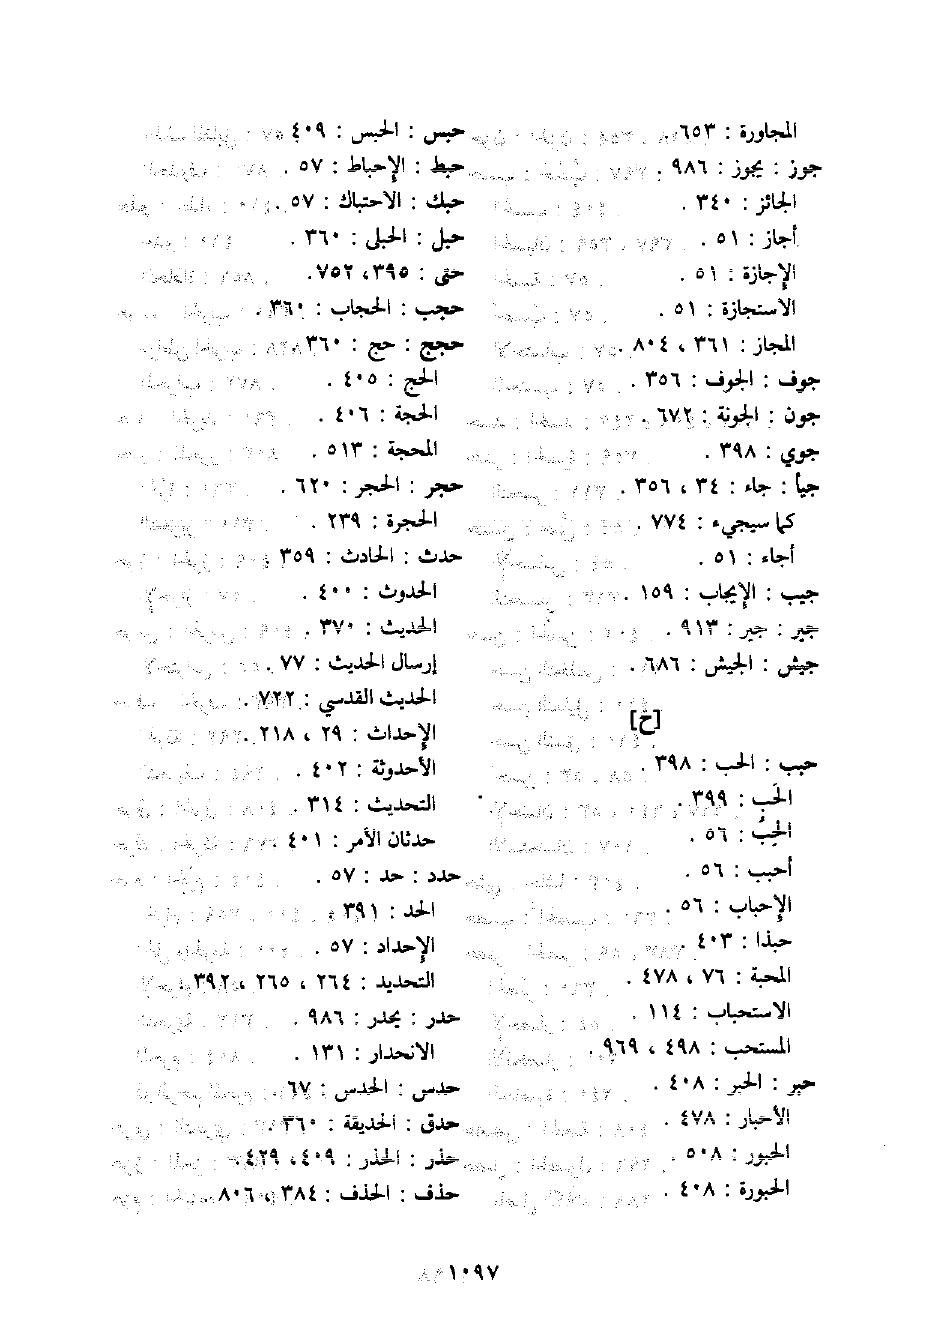 المجاورة : ٦٥٣
جوز : يجوز : ٩٨٦ .
الجائز : ٣٤٠ .
أجاز : ٥١ .
الإجازة : ٥١ .
الاستجازة : ٥١ .
المجاز : ٣٦١ ، ٨٠٤ .
جوف : الجوف : ٣٥٦ .
جون : الجونة : ٦٧٢ .
جوي : ٣٩٨ .
جيأ : جاء : ٣٤ ، ٣٥٦ .
كما سيجيء : ٧٧٤ .
أجاء : ٥١ .
جيب : الإيجاب : ١٥٩ .
جير : جير : ٩١٣ .
جيش : الجيش : ٦٨٦ .
[خ]
حبب : الحب : ٣٩٨ .
الحَب : ٣٩٩ .
الحِبُّ : ٥٦ .
أحبب : ٥٦ .
الإحباب : ٥٦ .
حبذا : ٤٠٣ .
المحبة : ٧٦ ، ٤٧٨ .
الاستحباب : ١١٤ .
المستحب : ٤٩٨ ، ٩٦٩ .
حبر : الحبر : ٤٠٨ .
الأحبار : ٤٧٨ .
الحبور : ٥٠٨ .
الحبورة : ٤٠٨ .
حبس : الحبس : ٤٠٩
حبط : الإحباط : ٥٧ .
حبك : الاحتباك : ٥٧ .
حبل : الحبلى : ٣٦٠ .
حتى : ٣٩٥، ٧٥٢ .
حجب : الحجاب : ٣٦٠ .
حجج : حج : ٣٦٠
الحج : ٤٠٥ .
الحجة : ٤٠٦ .
المحجة : ٥١٣ .
حجر : الحجر : ٦٢٠ .
الحجرة : ٢٣٩ .
حدث : الحادث : ٣٥٩
الحدوث : ٤٠٠ .
الحديث : ٣٧٠ .
إرسال الحديث : ٧٧ .
الحديث القدسي : ٧٢٢ .
الإحداث : ٢٩ ، ٢١٨ .
الأحدوثة : ٤٠٢ .
التحديث : ٣١٤ .
حدثان الأمر : ٤٠١
حدد : حد : ٥٧ .
الحد : ٣٩١
الإحداد : ٥٧ .
التحديد : ٢٦٤ ، ٢٦٥ ، ٣٩٢
حدر : يحدر : ٩٨٦ .
الانحدار : ١٣١ .
حدس : الحدس : ٦٧
حدق : الحديقة : ٣٦٠ .
حذر : الحذر : ٤٠٩، ٤٢٩ .
حذف : الحذف : ٣٨٤ ، ٨٠٦ .
١٠٩٧